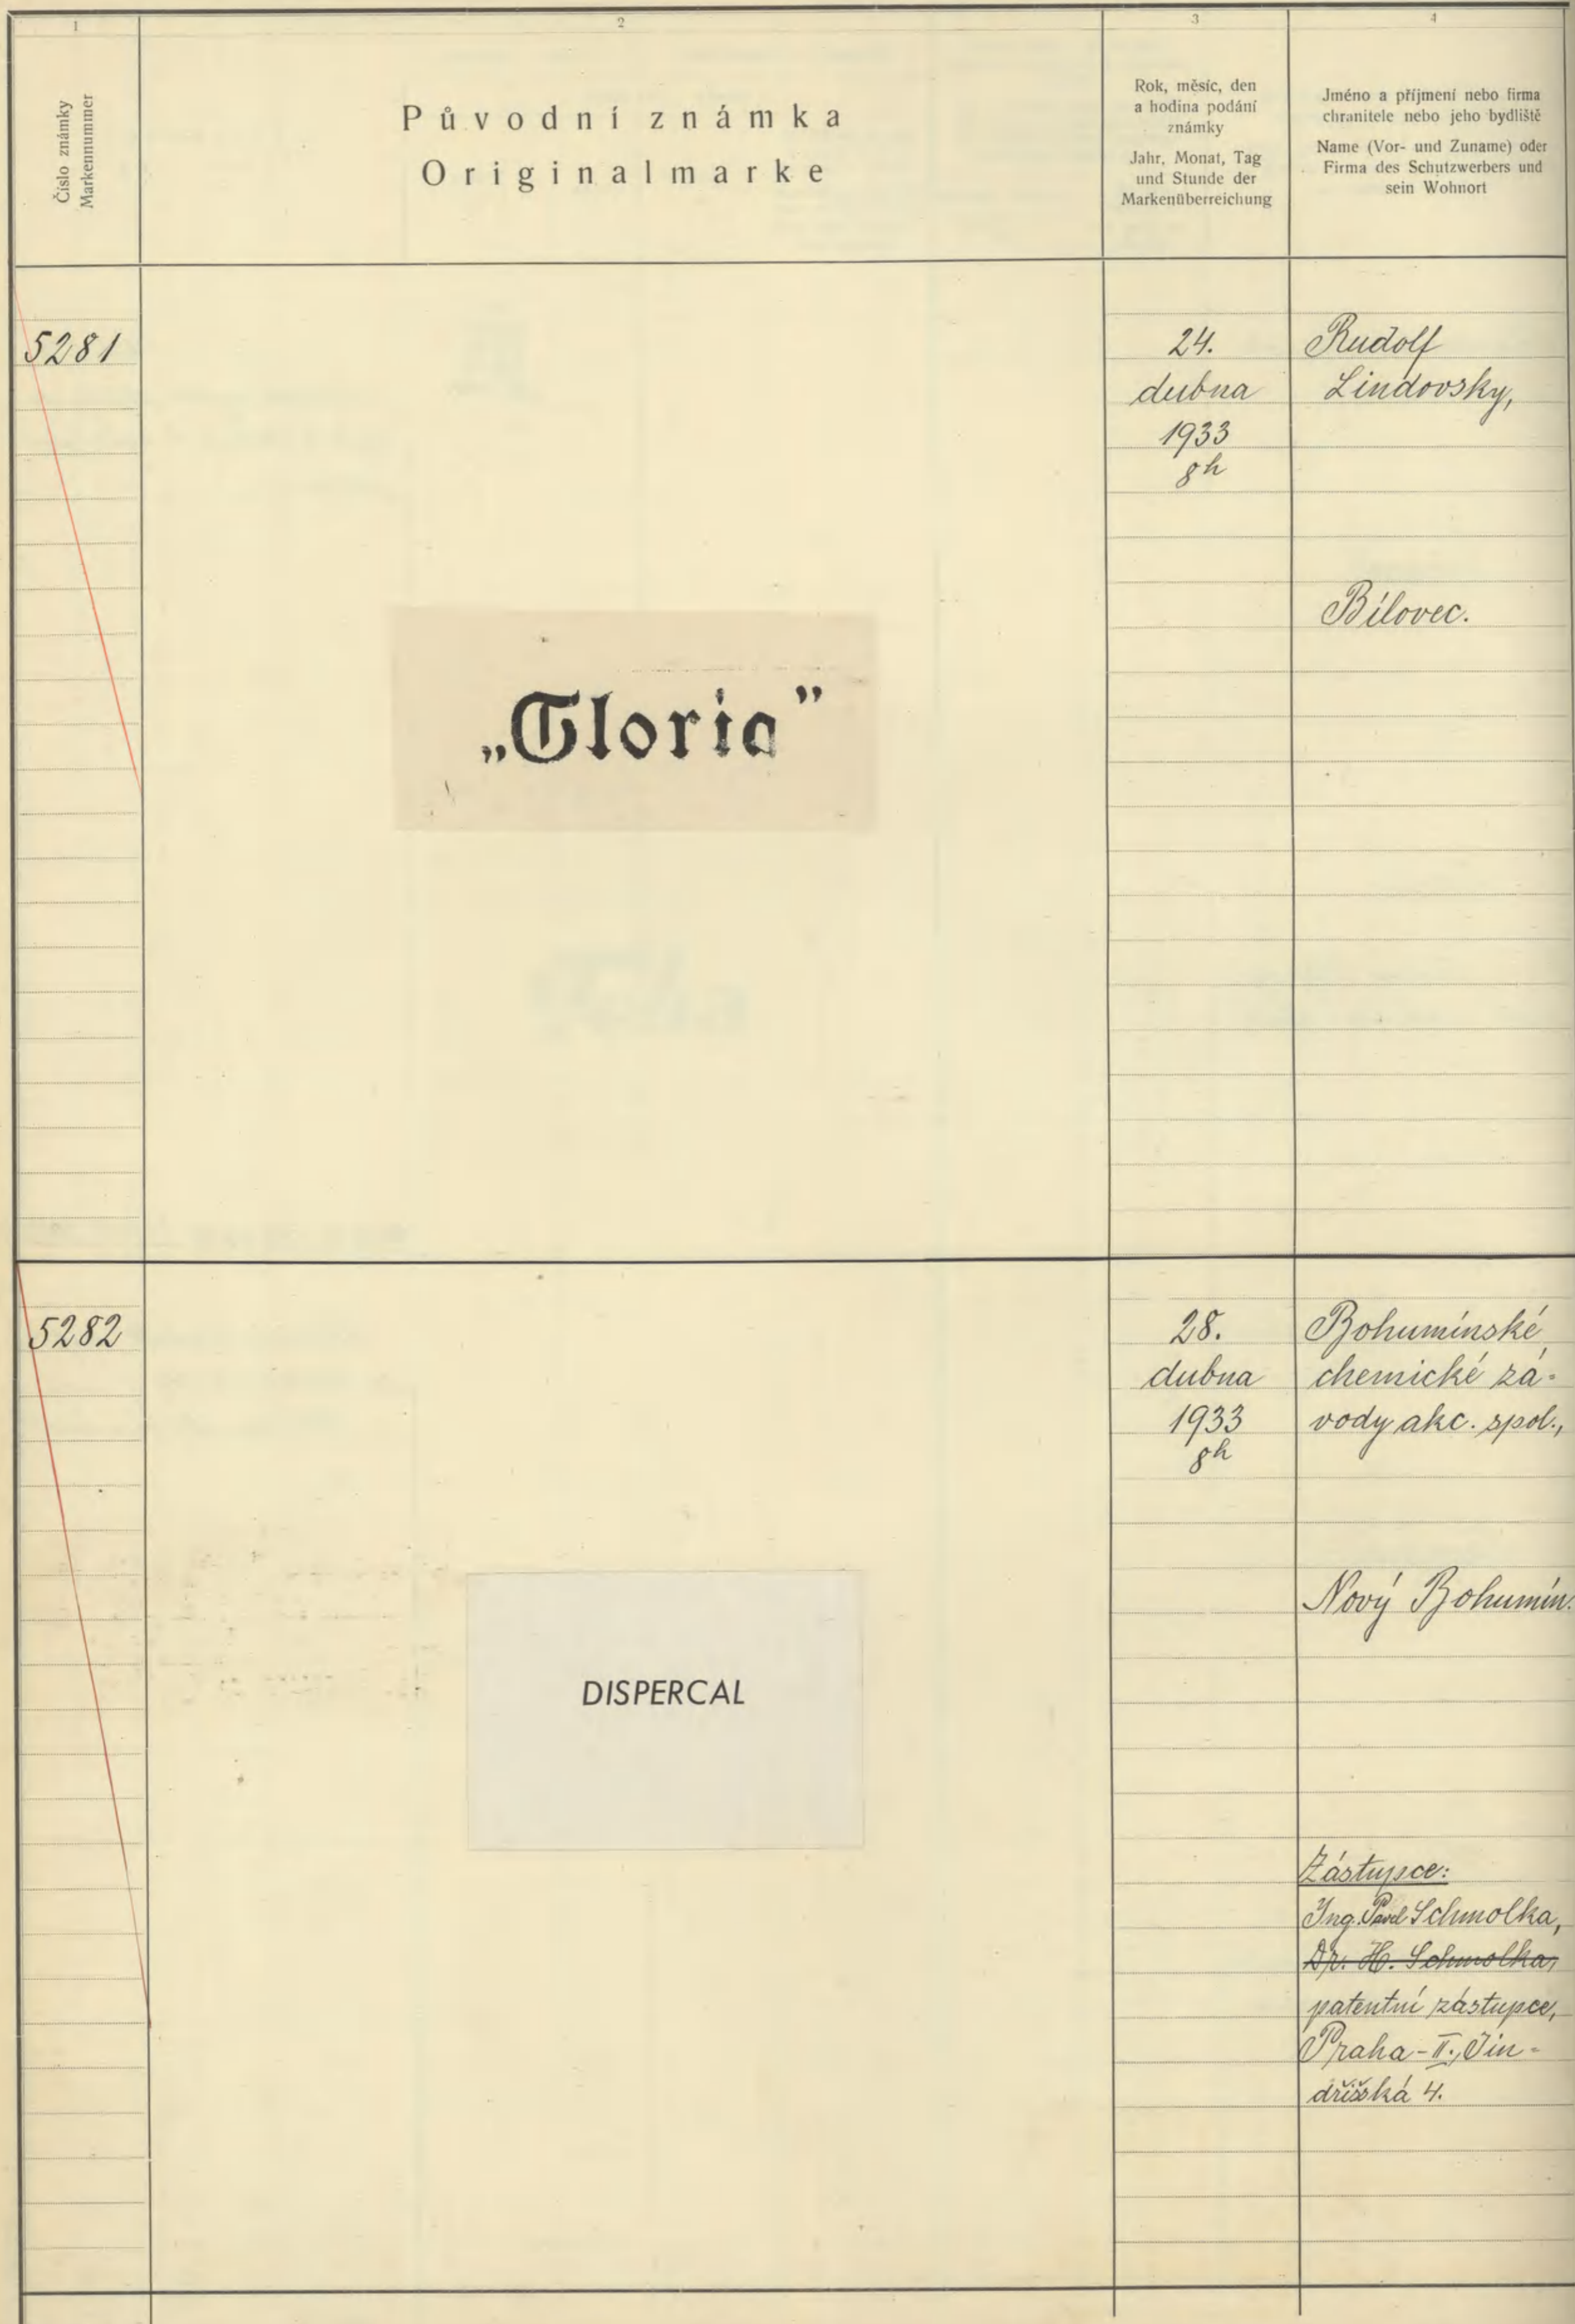 1
2
3
4
Číslo známky
Markennummer
Původní známka
Originalmarke
Rok, měsíc, den
a hodina podání
známky
Jahr, Monat, Tag
und Stunde der
Markenüberreichung
Jméno a příjmení nebo firma
chranitele nebo jeho bydliště
Name (Vor- und Zuname) oder
Firma des Schutzwerbers und
sein Wohnort
5281
„Gloria"
24.
dubna
1933
8h
Rudolf
Lindovsky,
Bílovec.
5282
DISPERCAL
28.
dubna
1933
8h
Bohumínské
chemické zá-
vody akc. spol.,
Nový Bohumín.
Zástupce:
Ing. Pavel Schmolka,
Dr. H. Schmolka,
patentní zástupce,
Praha-II., Jin-
dřišská 4.